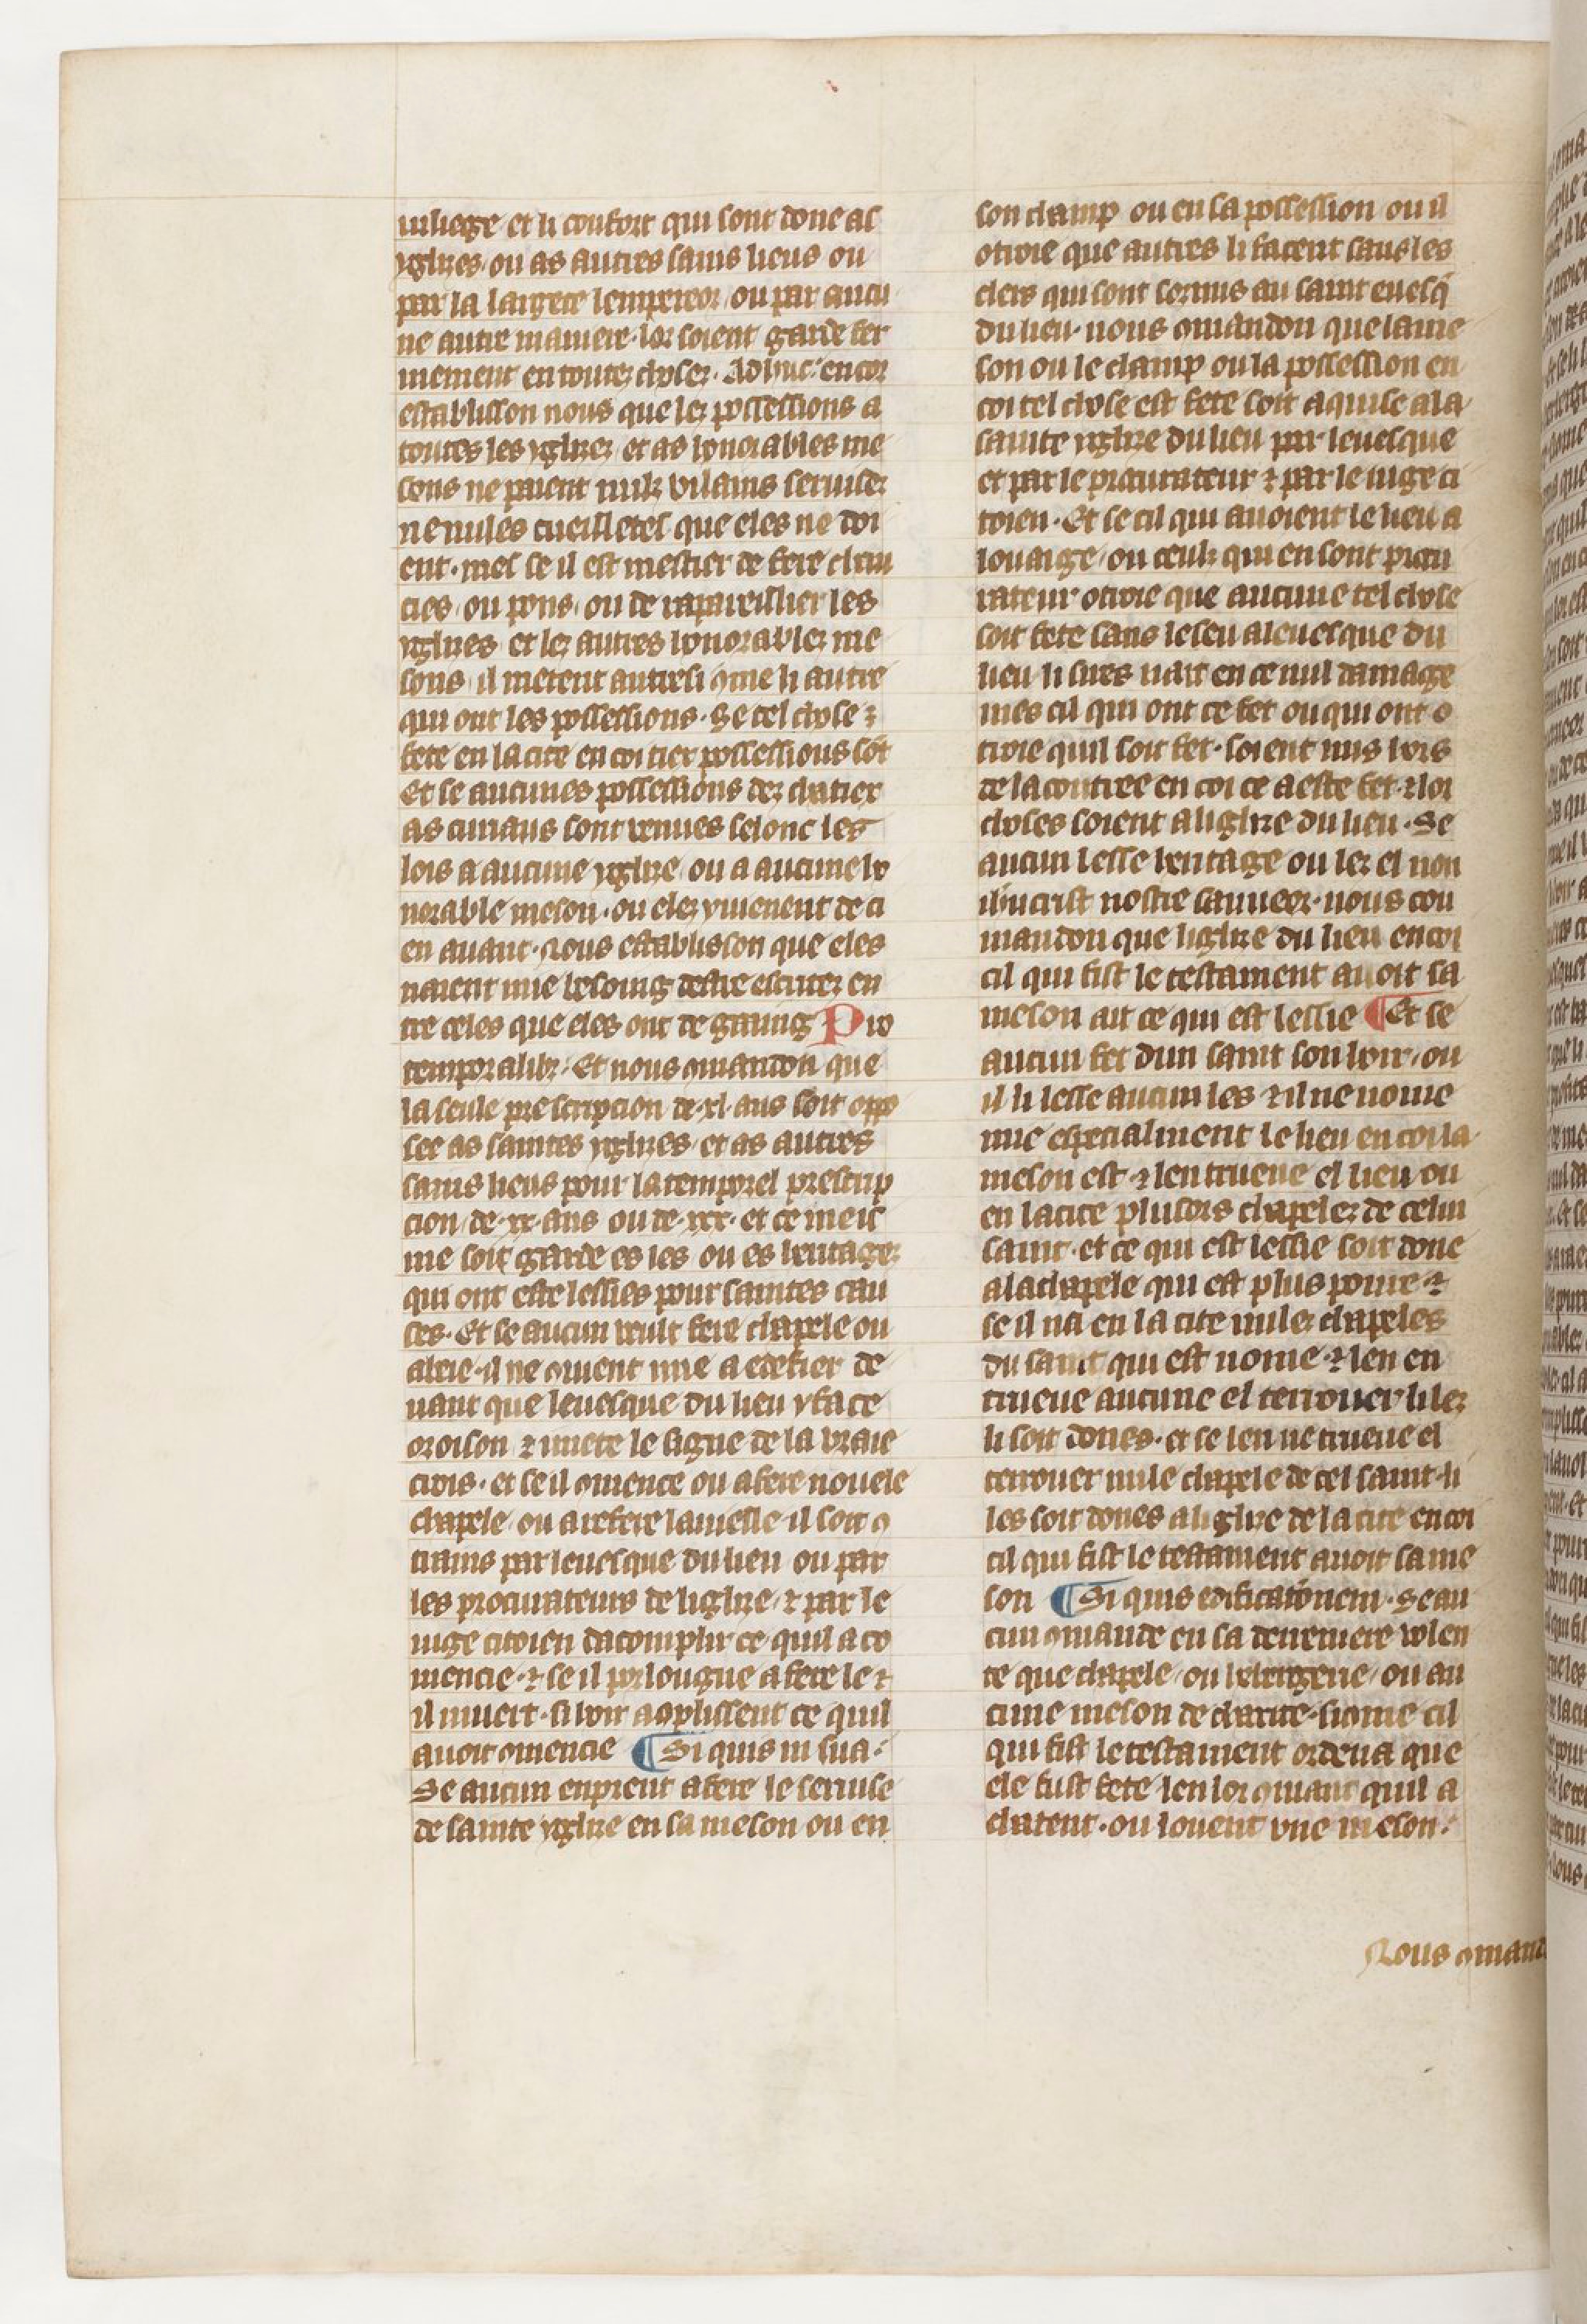 uiliege et li confort qui sont done as
yglises ou as autres sains lieus ou
par la largece lempereor ou par aucu
ne autre maniere. lor soient garde fer
mement en toutez chosez. Adhuc. encor
establisson nous que lez possessions a
toutes les yglisez et as honorables me
sons ne paient nulz vilains seruisez
ne nules cueilletes que eles ne doi
ent. mes se il est mestier de fere chau
cies ou pons ou de rapareillier les
yglises et lez autres honorablez me
sons il metent autresi ꝯme li autre
qui ont les possessions. Se tel chose ⁊
fete en la cite en coi tiex possessions soit
Et se aucunes possessions dez chatiex
as curiaus sont venues selonc les
lois a aucune yglise ou a aucune ho
norable meson. ou elez y vienent de ci
en auant. Nous establisson que eles
naient mie besoing destre escritez en
tre celes que eles ont de gaaing Pro
temporalibz. Et nous ꝯmandon que
la seule prescripcion de .xl. ans soit oppo
see as saintes yglises et as autres
sains lieus pour la temporel prescrip
cion de .xx. ans ou de .xxx. et ce meis
me soit garde es les ou es heritagez
qui ont este lessies pour saintes cau
ses. Et se aucun veult fere chapele ou
abeie. il ne ꝯuient mie a edefier de
uant que leuesque du lieu y face
oroison ⁊ mete le signe de la vraie
crois. et se il ꝯmence ou a fere nouele
chapele ou a refere la viesle il soit ꝯ
trains par leuesque du lieu ou par
les procurateurs de liglise ⁊ par le
iuge citoien dacomplir ce quil a co
mencie. ⁊ se il porlongue a fere le ⁊
il muert. si hoir acoplissent ce quil
auoit ꝯmencie ¶ Si quis in sua.
Se aucun enprent a fere le seruise
de sainte yglise en sa meson ou en
son champ ou en sa possession ou il
otroie que autres li facent sans les
clers qui sont sormis au saint euesq̃
du lieu. nous ꝯmandon que la me
son ou le champ ou la possession en
coi tel chose est fete soit aquise a la
sainte yglise du lieu par leuesque
et par le procurateur ⁊ par le iuge ci
toien. Et se cil qui auoient le lieu a
louaige ou ceulz qui en sont procu
rateur otroie que aucune tel chose
soit fete sans le seu a leuesque du
lieu li sires nait en ce nul damage
mes cil qui ont ce fet ou qui ont o
troie quil soit fet. soient mis hors
de la contree en coi ce a este fet. ⁊ lor
choses soient a liglise du lieu. Se
aucun lesse heritage ou lez el non
ihucrist nostre sauueor. nous cou
mandon que liglise du lieu en coi
cil qui fist le testament auoit sa
meson ait ce qui est lessie ¶ Et se
aucun fet dun saint son hoir. ou
il li lesse aucun les ⁊ il ne nome
mie especialment le lieu en coi la
meson est ⁊ len trueue el lieu ou
en la cite plusors chapelez de celui
saint. et ce qui est lessie soit done
a la chapele qui est plus poure ⁊
se il na en la cite nulez chapeles
du saint qui est nome. ⁊ len en
trueue aucune el terrouer li lez
li soit dones. et se len ne trueue el
terrouer nule chapele de tel saint. li
les soit dones a liglise de la cite en coi
cil qui fist le testament auoit sa me
son ¶ Si quis edificationem. Se au
cun ꝯmande en sa derreniere volen
te que chapele ou hebergerie ou au
cune meson de charite. si ꝯme cil
qui fist le testament ordena que
ele fust fete len lor ꝯmant quil a
chatent. ou louent vne meson.
Nous ꝯmand